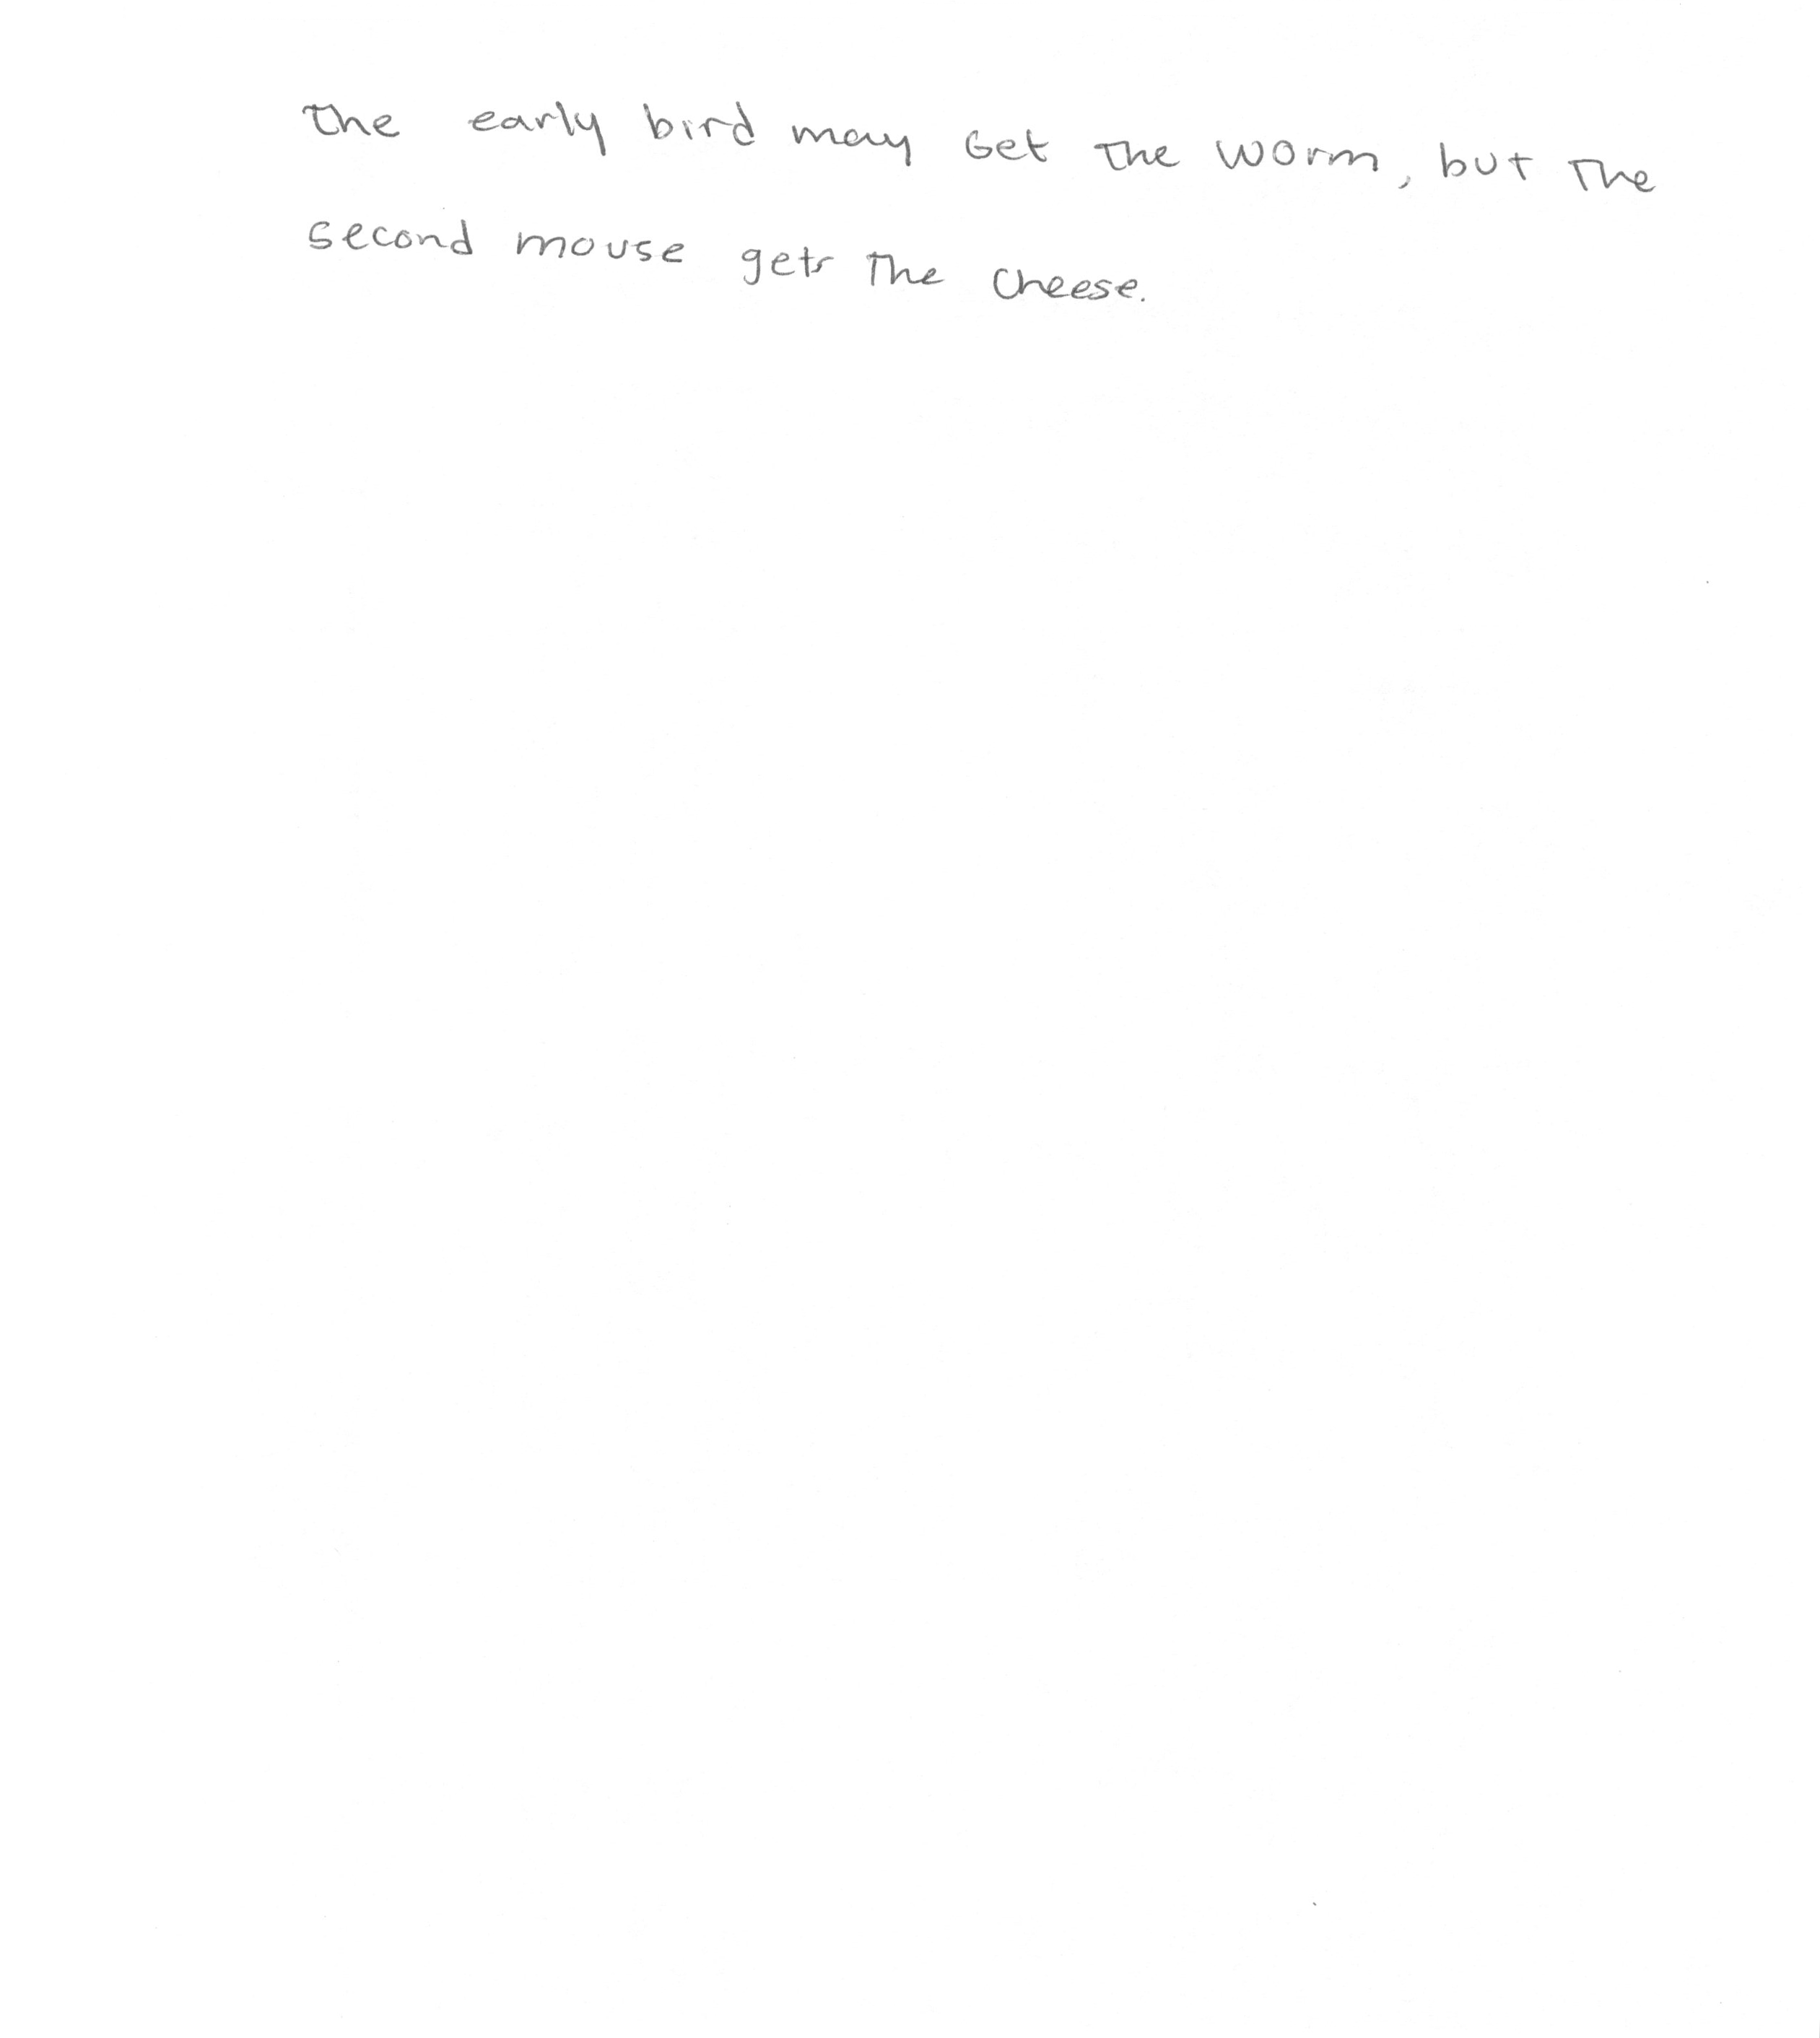 The early bird may Get The worm, but The
second mouse gets The cheese.